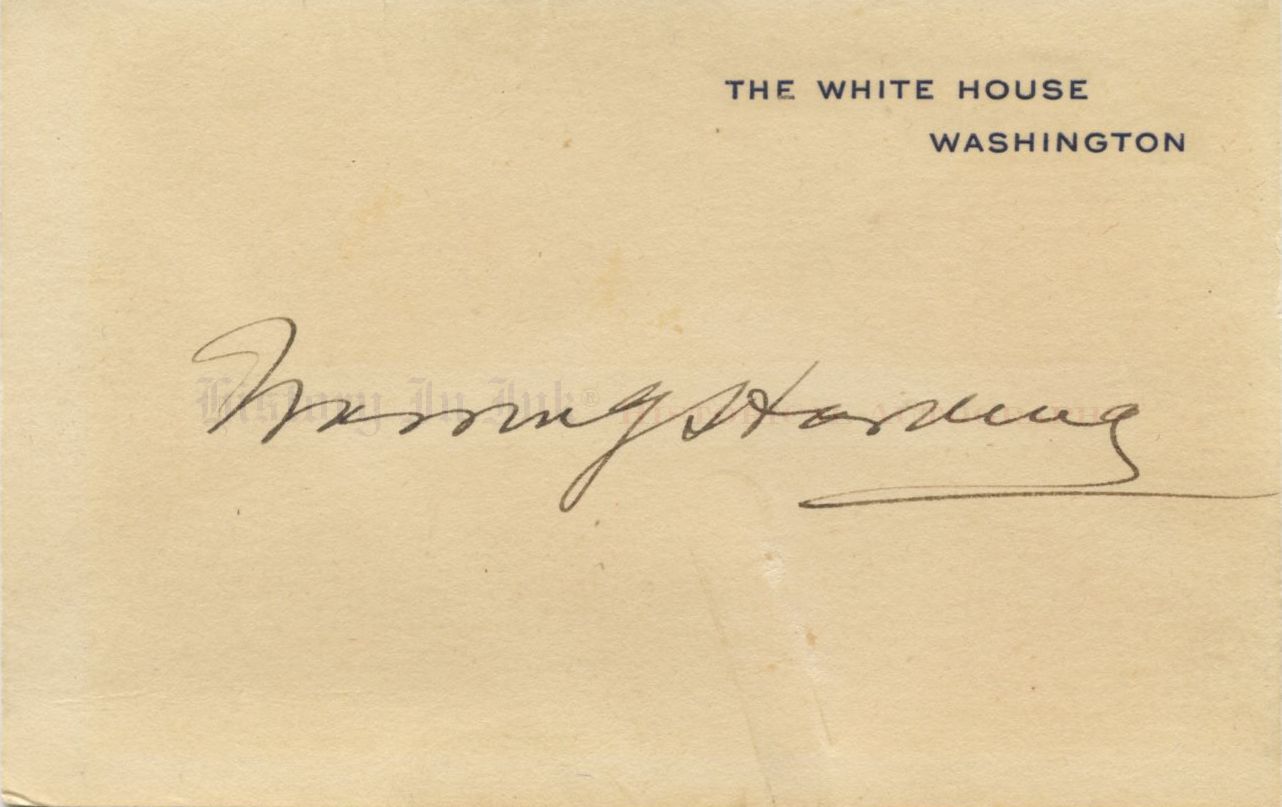 THE WHITE HOUSE
WASHINGTON
Warren G Harding
History In Ink®